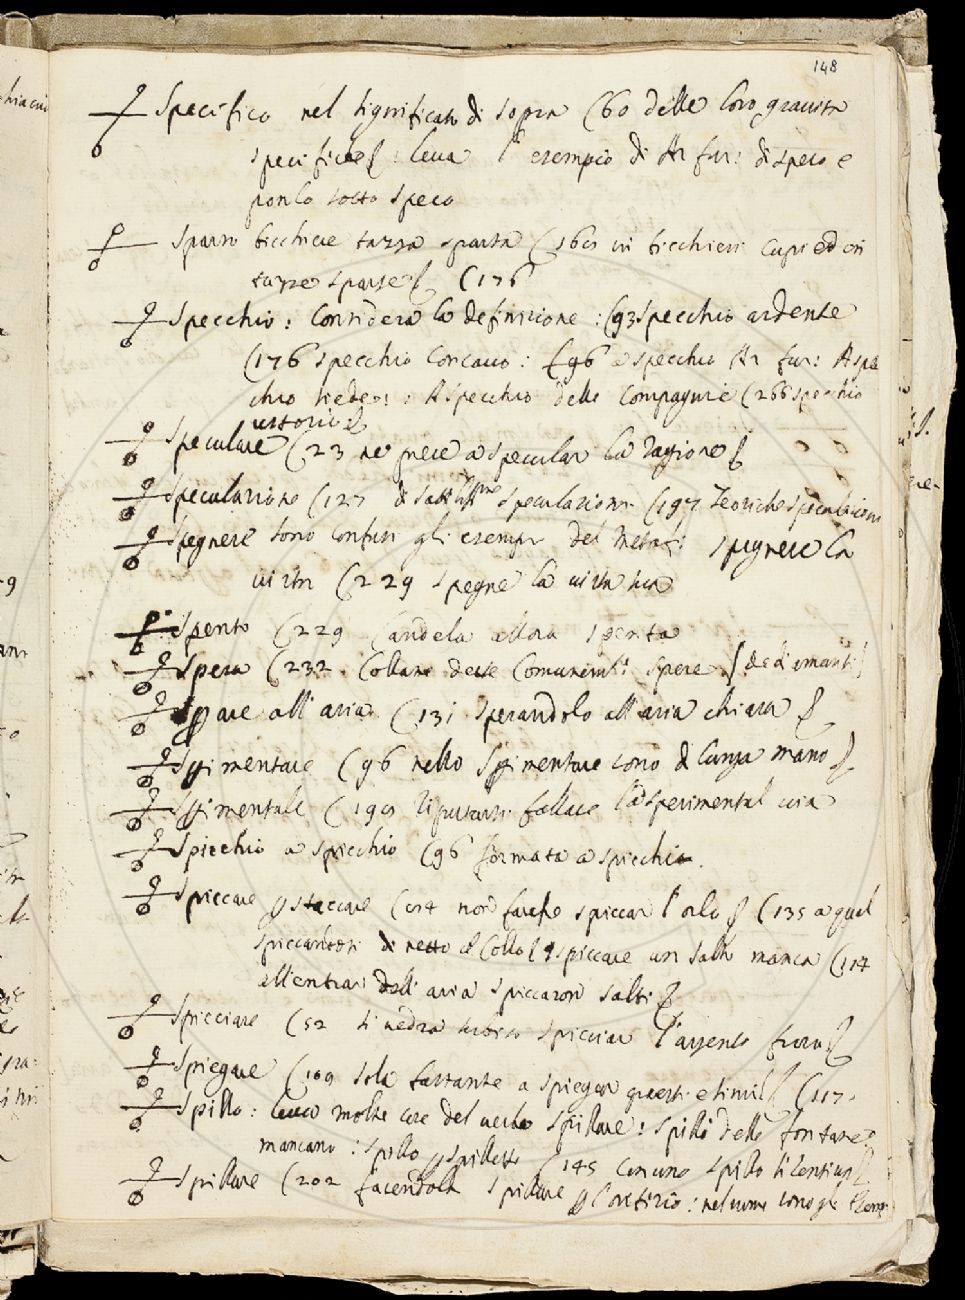 148
Specifico nel significato di sopra (60 delle loro gravità
specifiche : leva l'esempio di Ar fur: di speco e
ponlo sotto speco
Sparso bicchiere tazza sparsa (169 in bicchieri cupi ed in
tazze sparse (176
Specchio : Considera la definizione : (93 specchio ardente
(176 specchio concavo : (96 a specchio Ar fur: A spe
chio : A Specchio delle Compagnie (266 specchio
ustorio
Speculare (23 ne prese a specular la ragione
Speculazione (127 di speculazioni (197 Teoriche speculazioni
Spegnere sono confusi gli esempi del Metaf: spegnere la
virtù (229 spegne la virtù sua
Spento (229 Candela allora spenta
Spera (232 . Collane dette Comunemte spere de diamanti
Sperare all'aria (131 sperandolo all'aria chiara
Sperimentare (96 nello Sperimentare sono di lunga mano
Sperimentale (199 riputarsi fallace la sperimental via
Spicchio a spicchio (96 formata a spicchi
Spiccare p staccare (114 non facesse spiccar l'orlo (135 a quel
spiccandosi di netto il Collo spiccare un salto manca (114
all'entrar dell'aria spiccaron salti
Spicciare (52 si vedrà spicciar l'argento fuora
Spiegare (109 sola bastante a spiegar questi e simili (117.
Spillo : leva molte cose del verbo Spillare : spilli delle fontane
mancano : spillo p spilletto (145 con uno spillo
Spillare (202 facendola spillare p l'orifizio : nel sono gli